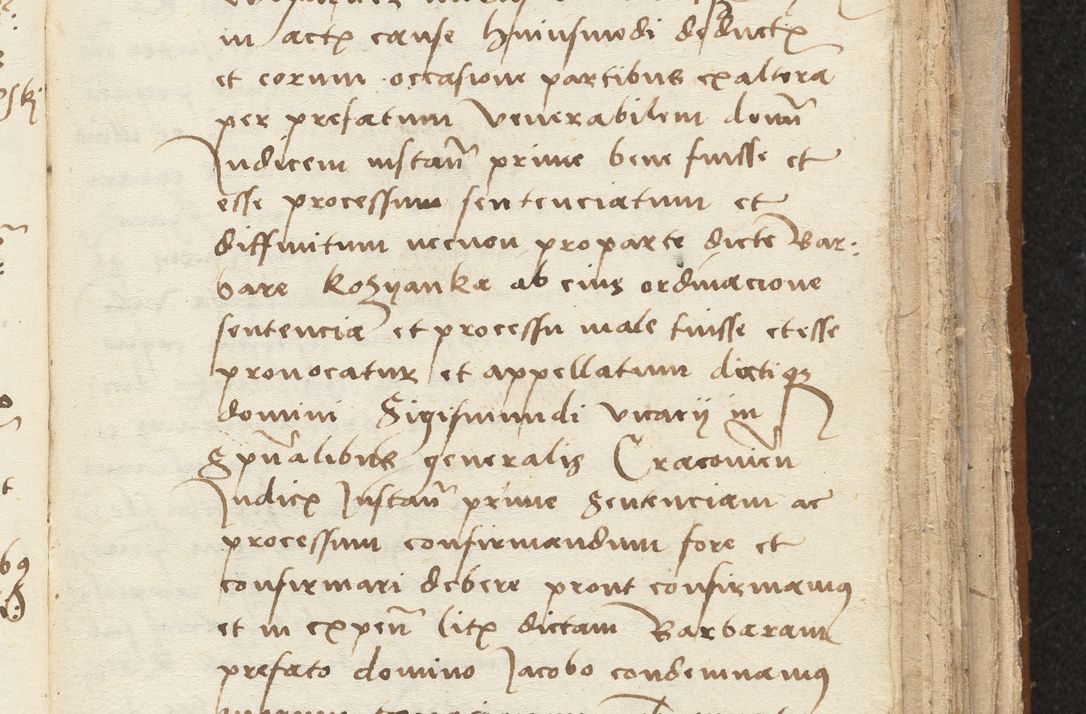 in actis cause huiusmodi deductis
et eorum occasione partibus ex altera
per prefatum venerabilem domn̄
Iudicem instan̄ prime bene fuisse et
esse processum sentenciatum et
diffinitum necnon pro parte dicte Bar:
bare Kozyanka ab eius ordinacione
sentencia et processu male fuisse et esse
prouocatum et appellatum dictiqȝ
domini Sigismundi vicarij in
Spūalibus generalis Cracouien̄
Iudicis Instan̄ prime Sentenciam ac
processum confirmandum fore et
confirmari debere prout confirmamus
et in expen̄ litis dictam Barbaram
prefato domino Jacobo condemnamus